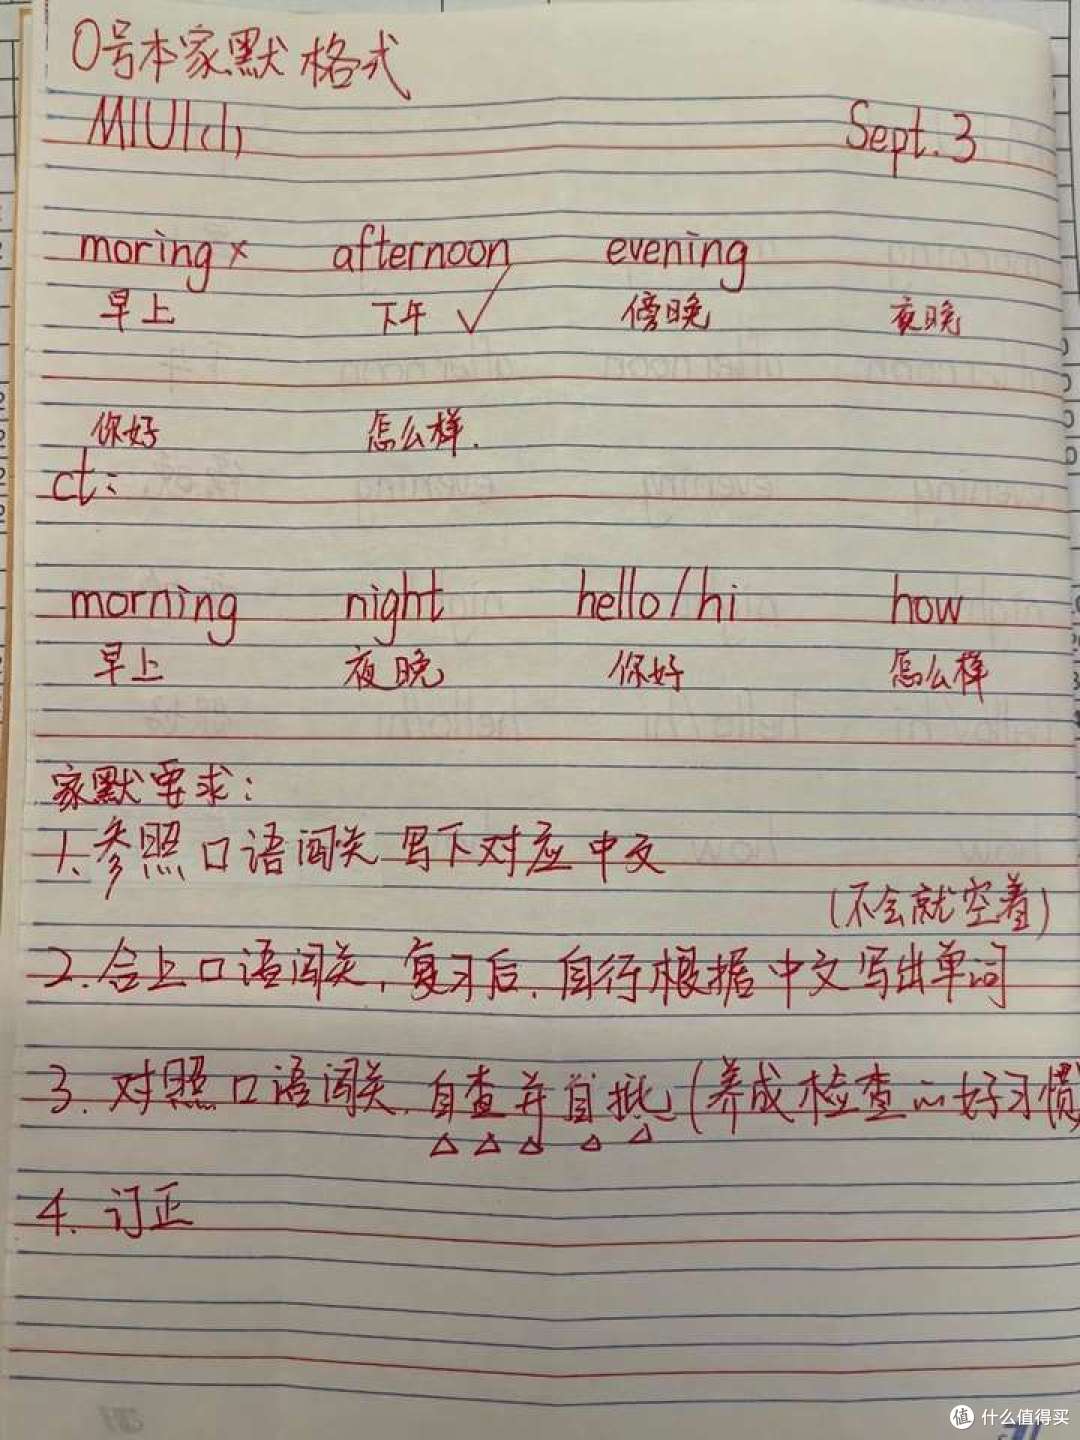 0号本家默格式
M1U1(1) Sept. 3
moring × afternoon evening
早上 下午 ✓ 傍晚 夜晚
你好 怎么样.
ct:
morning night hello/hi how
早上 夜晚 你好 怎么样
家默要求:
1. 参照口语闯关写下对应中文
(不会就空着)
2. 合上口语闯关, 复习后, 自行根据中文写出单词
3. 对照口语闯关, 自查并自批 (养成检查的好习惯
4. 订正
值 什么值得买